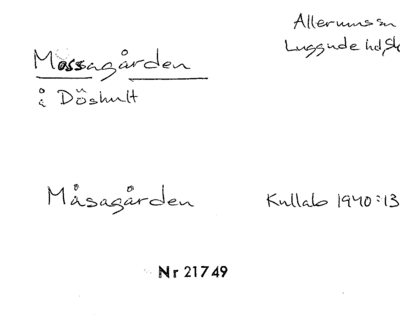 Allerums sn
Luggude hd, Sk
Mossagården
å Döshult
Måsagården
Kullab 1940:13
Nr 21749